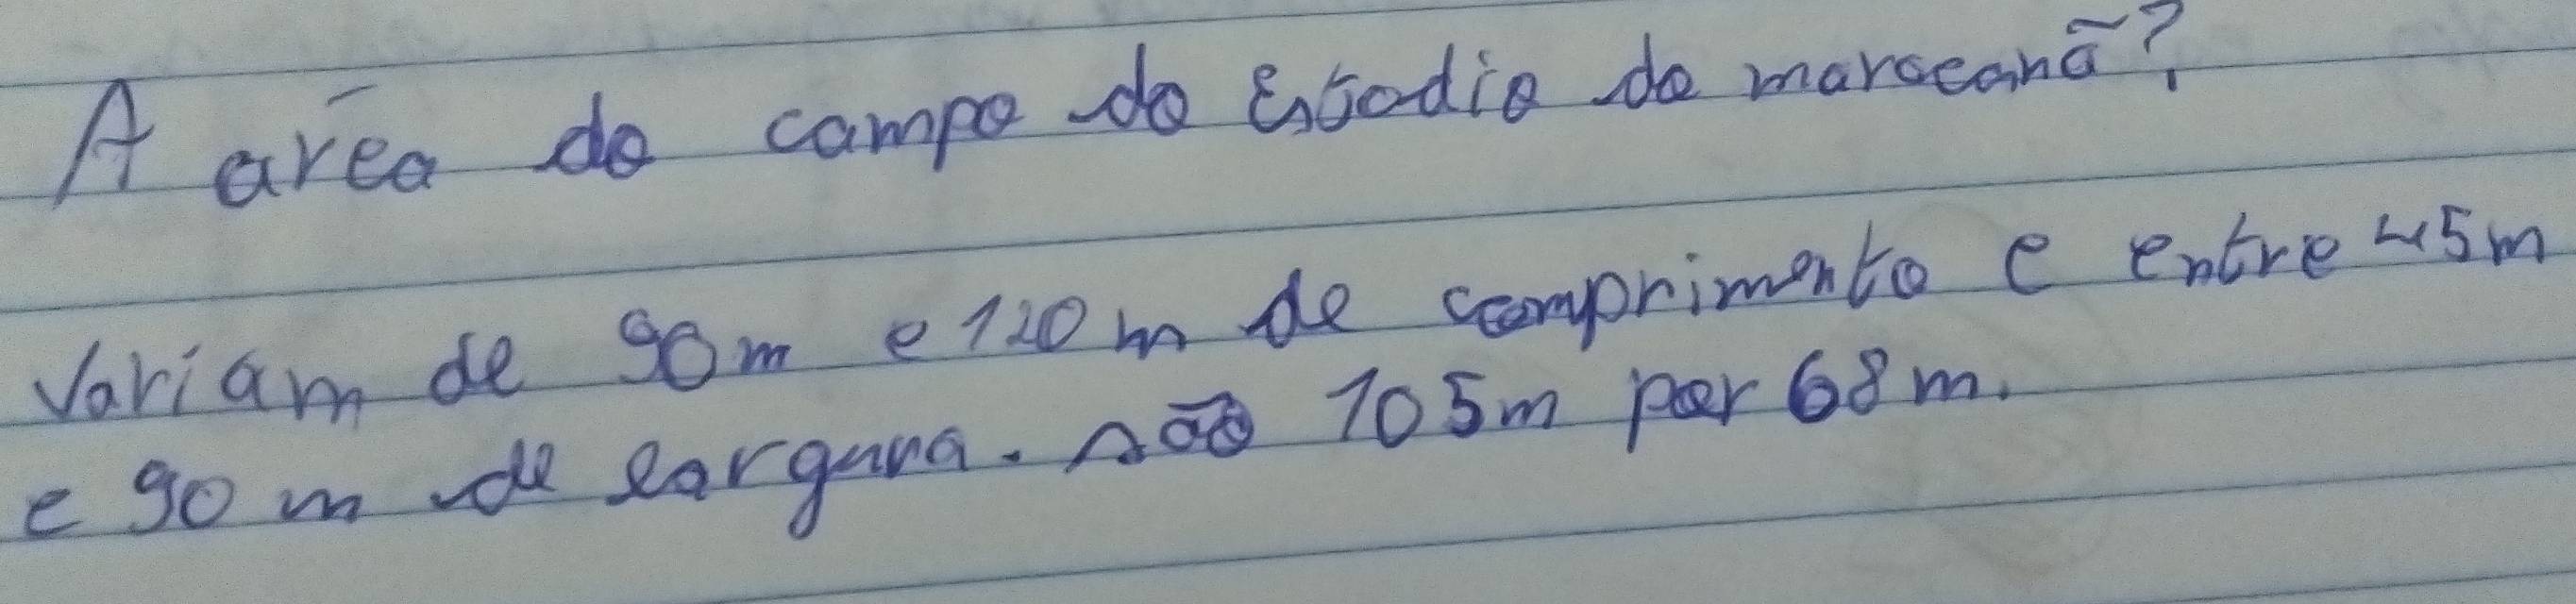 A aréa do campo do Estadio do maracanã?
Variam de 90m e 120m de comprimento e entre 45m
e 90 m de largura. são 105m por 68m.